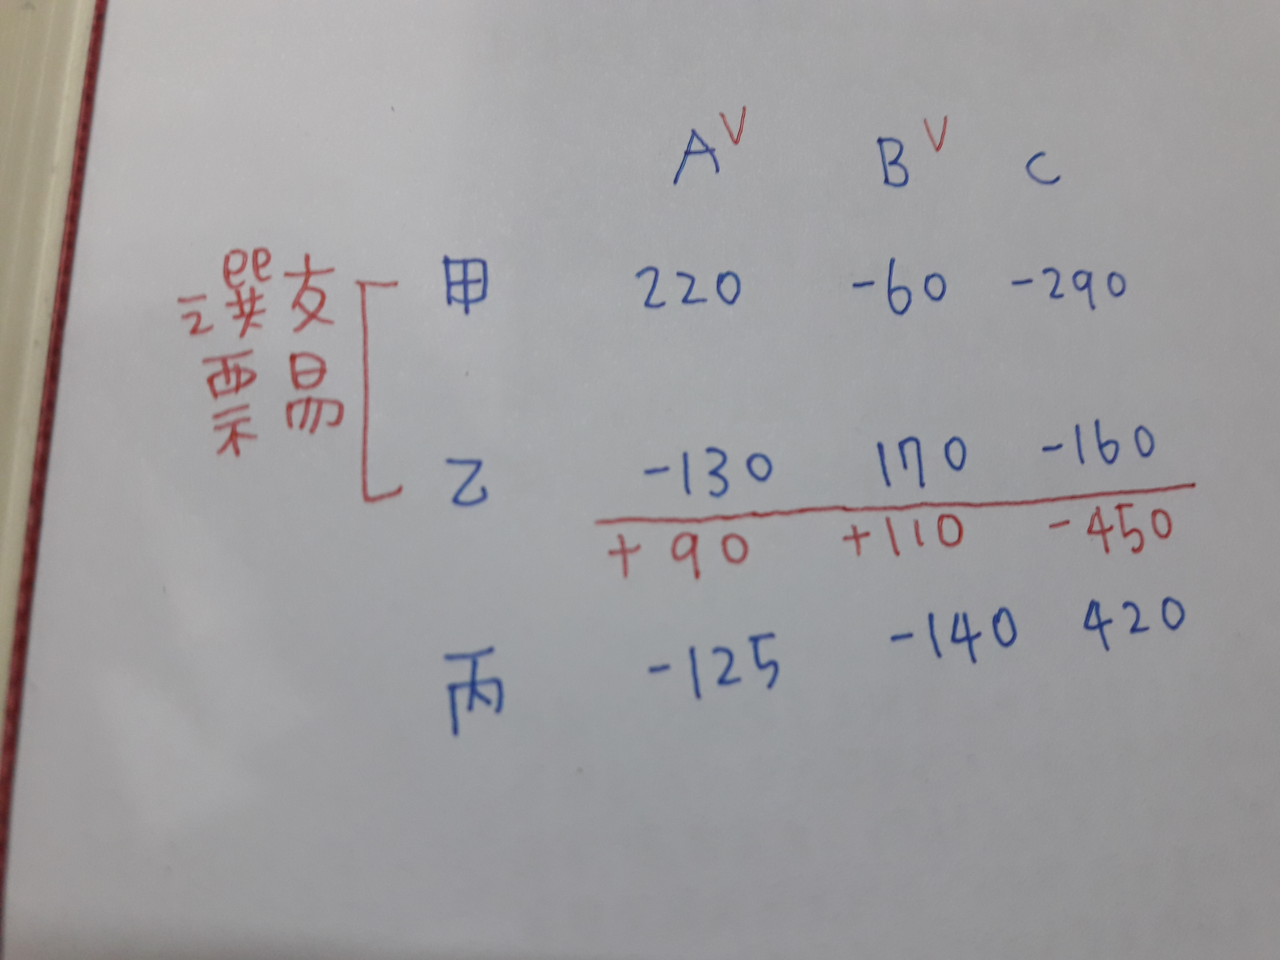 A V B V C
交易
選票
甲 220 -60 -290
乙 -130 170 -160
+90 +110 -450
丙 -125 -140 420